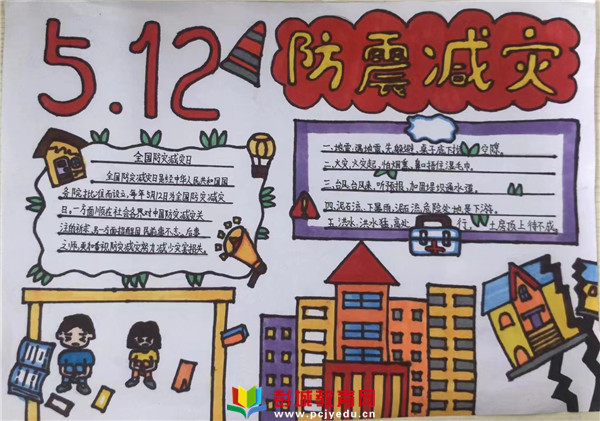 5.12
防震减灾
全国防灾减灾日
全国防灾减灾日是经中华人民共和国国
务院批准而设立,每年5月12日为全国防灾减灾
日。一方面顺应社会各界对中国防灾减灾关
注的诉求,另一方面提醒国民前事不忘、后事
之师,更加重视防灾减灾努力减少灾害损失。
一.地震,遇地震,先躲避,桌子底下
二.火灾,火灾起,怕烟熏,鼻口捂住湿毛巾。
三.台风,台风来,听预报,加固堤坝通水道。
四.泥石流,下暴雨,泥石流,危险处地是下游。
五.洪水,洪水猛,高处行,土房顶上待不成。
创佩教育网
www.pcjyedu.cn